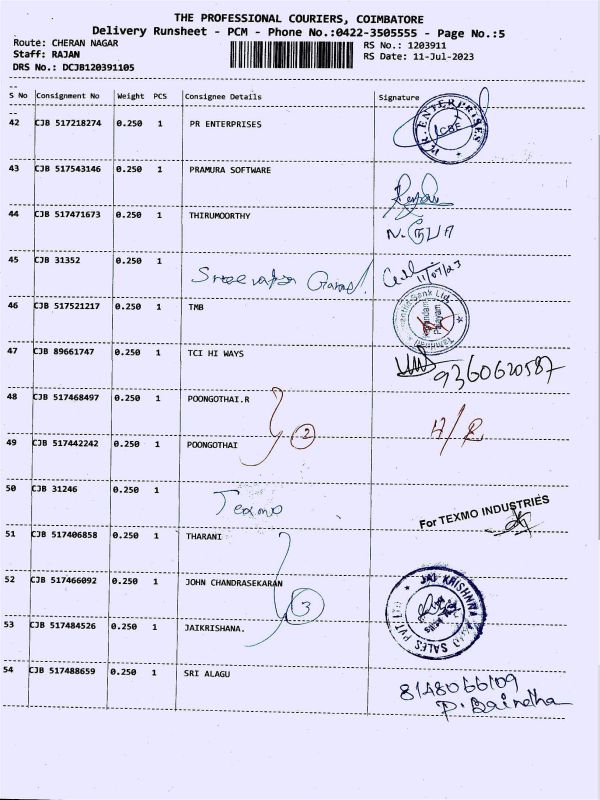 THE PROFESSIONAL COURIERS, COIMBATORE
Delivery Runsheet - PCM - Phone No.:0422-3505555 - Page No.:5
Route: CHERAN NAGAR
RS No.: 1203911
Staff: RAJAN
RS Date: 11-Jul-2023
DRS No.: DCJB120391105
S No Consignment No Weight PCS Consignee Details Signature
42 CJB 517218274 0.250 1 PR ENTERPRISES
ENTERPRISES
CBE
43 CJB 517543146 0.250 1 PRAMURA SOFTWARE
44 CJB 517471673 0.250 1 THIRUMOORTHY
45 CJB 31352 0.250 1
11/07/23
46 CJB 517521217 0.250 1 TMB
Bank Ltd.
47 CJB 89661747 0.250 1 TCI HI WAYS
9360620587
48 CJB 517468497 0.250 1 POONGOTHAI.R
2
49 CJB 517442242 0.250 1 POONGOTHAI
50 CJB 31246 0.250 1
Texmo
For TEXMO INDUSTRIES
51 CJB 517406858 0.250 1 THARANI
52 CJB 517466092 0.250 1 JOHN CHANDRASEKARAN
3
JAI KRISHNNA
SALES PVT LTD
53 CJB 517484526 0.250 1 JAIKRISHANA.
54 CJB 517488659 0.250 1 SRI ALAGU
8148066109